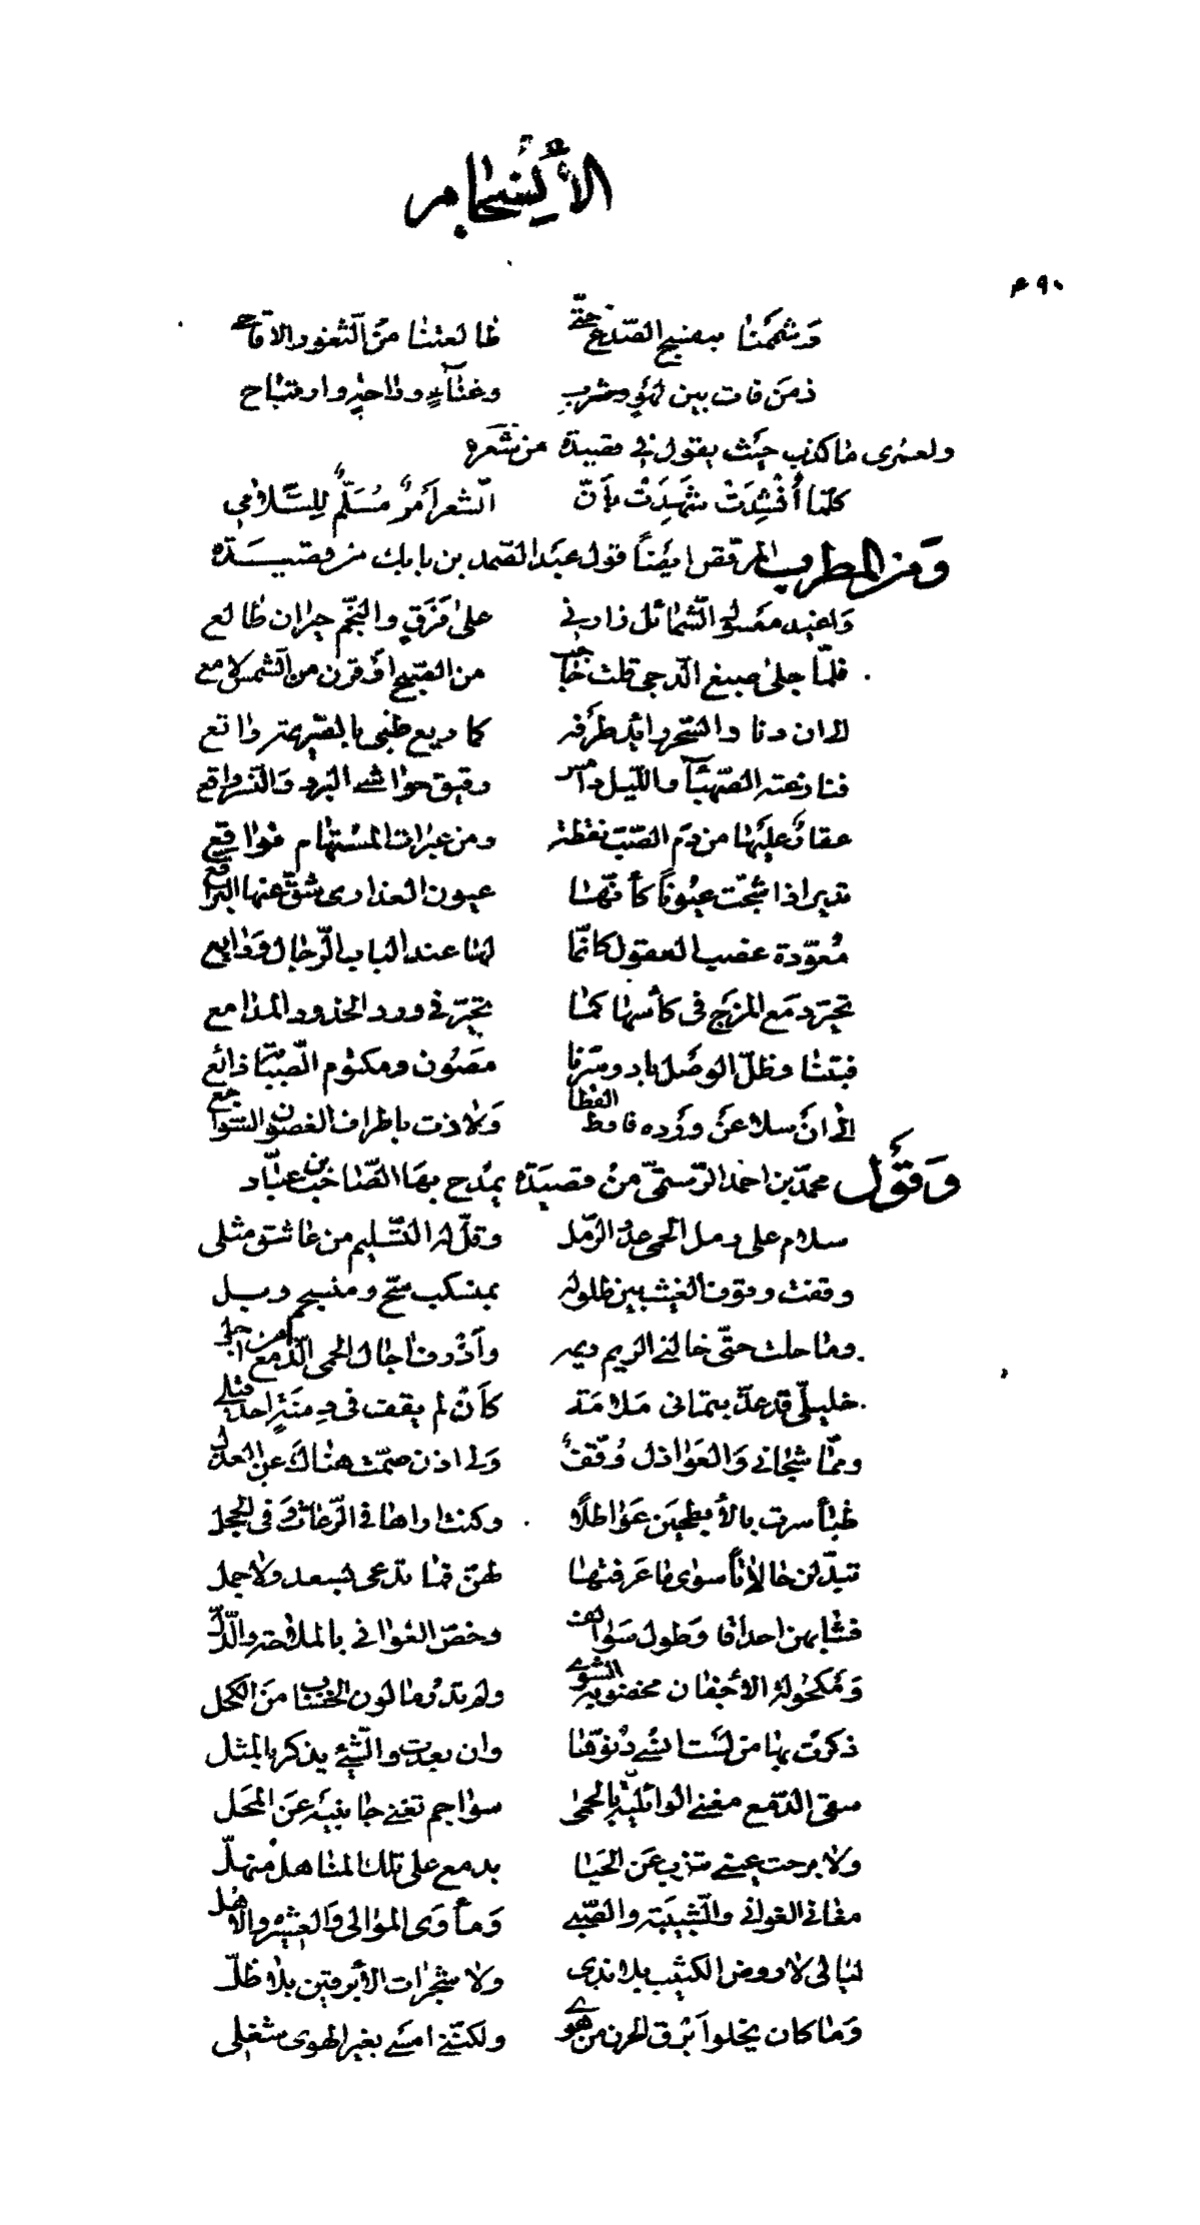 الأنسجام
٤٩٠
وشممنا بنفسج الصدغ حتى طالعتنا من الثغور الاقاحى
زمن فات بين لهو وشرب وغناء وراحة وارتياح
ولعمرى ما كذب حيث يقول فى قصيدة من شعره
كلما أُنشِدَتْ شَهِدَتْ بأنّ الشعرَ أمرٌ مُسَلَّمٌ لِلسَّلامى
ومن المطرب المرقص ايضاً قول عبد الصمد بن بابك من قصيدة
واغيد معسول الشمائل زارنى على فرق والنجم حيران طالع
فلما جلى صبغ الدجى قلت حاجب من الصبح أو قرن من الشمس لامع
الى ان دنا والسحر رائد طرفه كما ريع ظبى بالصريمة راتع
فنازعته الصهباء والليل دامس رقيق حواشى البرد والنسر واقع
عقار عليها من دم الصب نفطة ومن عبرات المستهام فواقع
تدير اذا شجت عيوناً كأنها عيون العذارى شق عنها البراقع
معودة غصب العقول كانما لها عند الباب الرجال ودايع
تحير دمع المزج فى كاسها كما تحير فى ورد الخدود المدامع
فبتنا وظل الوصل باد وسرنا مصون ومكتوم الصبابة ذائع
الى ان سلا عن ورده فارط القطا ولاذت باطراف الغصون السواجع
وقول محمد بن احمد الرستمى من قصيدة يمدح بها الصاحب بن عباد
سلام على رمل الحمى عدد الرمل وقل له التسليم من عاشق مثلى
وقفت وقوف الغيث بين طلوله بمنسكب سح ومنسجم وبل
وما حلت حتى خالنى الريم ريمه وأذرف آجال الحمى الدمع من اجلى
خليلى قد عذبتمانى ملامة كأن لم يقف فى دمنة احد قبلى
ومما شجانى والعواذل وقف ولى اذن صمت هناك عن العذل
ظباً سرت بالأبطحين عواطلاً وكنت اراها فى الرعاث وفى الحجل
تبدلن خالاناً سوى ما عرفتها لهن فما تدعى بسعد ولا جمل
فشابهن احداقا وطول سوالف وخص الغوانى بالملاحة والدل
ومكحولة الأجفان مخضوبة الشوى ولم تدر ما لون الخضاب من الكحل
ذكرت بها من لست انسى ذنوبها وان بعدت والشئ يذكر بالمثل
سقى الدمع مغنى الوائلية بالحمى سواجم تغنى جانبيه عن المحل
ولا برحت عينى تنوب عن الحيا بدمع على تلك المناهل منهل
مغانى الغوانى والشبيبة والصبى ومأوى الموالى والعشيرة والاهل
ليالى لا روض الكثيب بلا ندى ولا شجرات الأبرقين بلا ظل
وما كان يخلو أبرق الحزن من هوى ولكننى امسى بغير الهوى شغلى